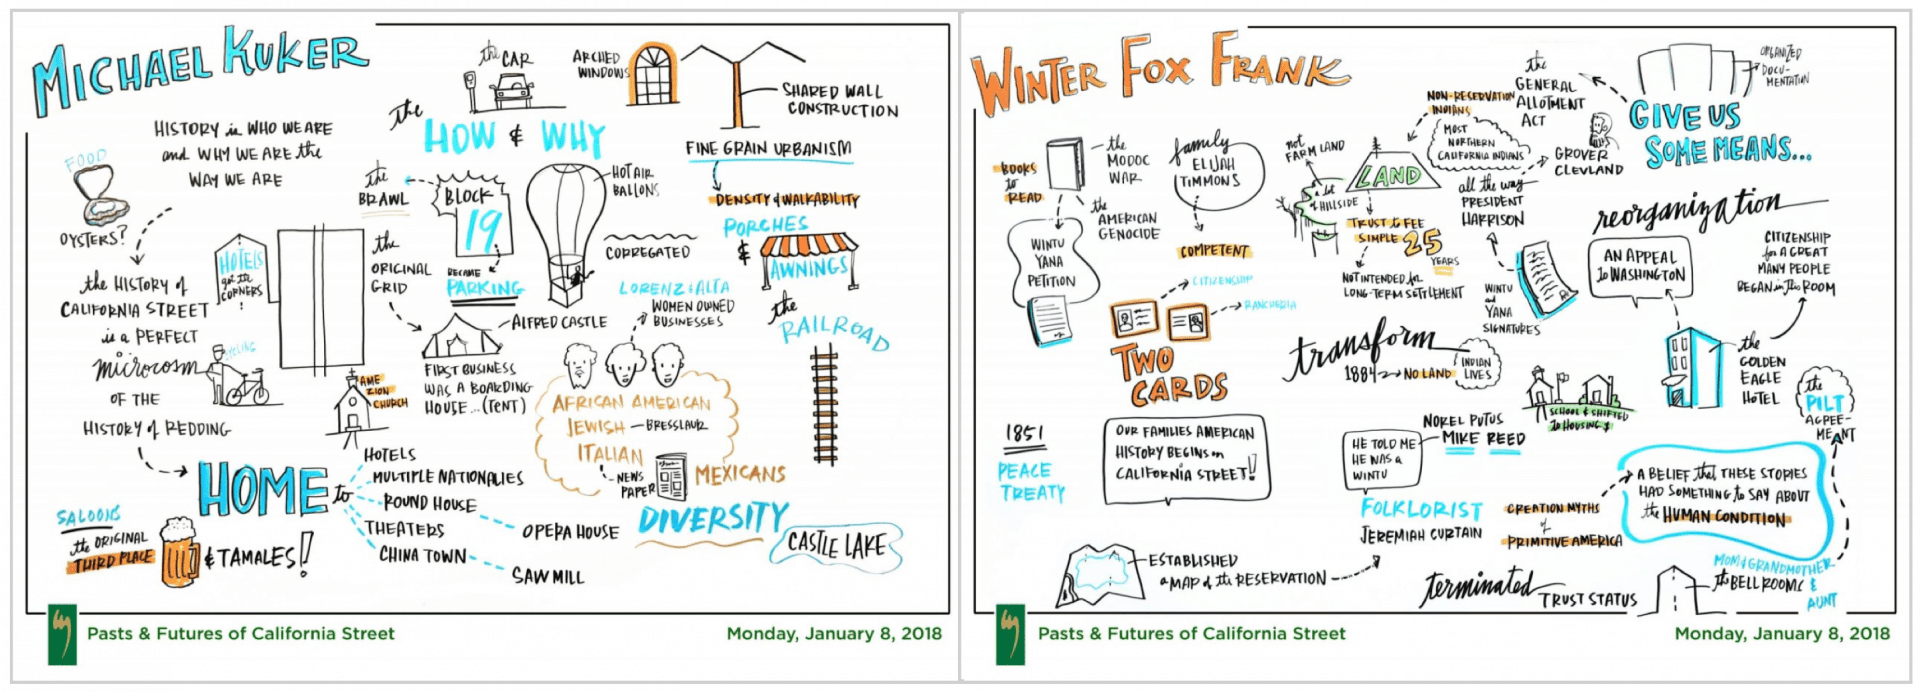 MICHAEL KUKER
HISTORY is WHO WE ARE
and WHY WE ARE the
WAY WE ARE
FOOD
OYSTERS?
the HISTORY of
CALIFORNIA STREET
is a PERFECT
microcosm
OF THE
HISTORY of REDDING
CYCLING
HOTELS
got the
CORNERS
!
the
ORIGINAL
GRID
AME
ZION
CHURCH
the
CAR
the
HOW & WHY
the
BRAWL
BLOCK
19
BECAME
PARKING
HOT AIR
BALLONS
ARCHED
WINDOWS
SHARED WALL
CONSTRUCTION
FINE GRAIN URBANISM
DENSITY & WALKABILITY
PORCHES
&
AWNINGS
CORREGATED
the
RAILROAD
ALFRED CASTLE
FIRST BUSINESS
WAS A BOARDING
HOUSE... (TENT)
LORENZ & ALTA
WOMEN OWNED
BUSINESSES
AFRICAN AMERICAN
JEWISH - BRESSLAUR
ITALIAN
NEWS
PAPER
MEXICANS
DIVERSITY
CASTLE LAKE
HOME to
HOTELS
MULTIPLE NATIONALIES
ROUND HOUSE
THEATERS
CHINA TOWN
OPERA HOUSE
SAW MILL
SALOONS
the ORIGINAL
THIRD PLACE
& TAMALES!
Pasts & Futures of California Street
Monday, January 8, 2018
WINTER FOX FRANK
BOOKS
to
READ
the
MODOC
WAR
the
AMERICAN
GENOCIDE
WINTU
YANA
PETITION
family
ELIJAH
TIMMONS
COMPETENT
CITIZENSHIP
RANCHERIA
TWO
CARDS
not
FARM LAND
a lot
of HILLSIDE
LAND
NON-RESERVATION
INDIANS
MOST
NORTHERN
CALIFORNIA INDIANS
the
GENERAL
ALLOTMENT
ACT
GROVER
CLEVLAND
all the way
PRESIDENT
HARRISON
TRUST to FEE
SIMPLE 25
YEARS
NOT INTENDED for
LONG-TERM SETTLEMENT
WINTU
and
YANA
SIGNATURES
ORGANIZED
DOCU-
MENTATION
GIVE US
SOME MEANS...
reorganization
AN APPEAL
to WASHINGTON
CITIZENSHIP
for A GREAT
MANY PEOPLE
BEGAN in this ROOM
the
GOLDEN
EAGLE
HOTEL
transform
1884 NO LAND
INDIAN
LIVES
SCHOOL & SHIFTED
to HOUSING
the
PILT
AGREE-
MENT
1851
PEACE
TREATY
OUR FAMILIES AMERICAN
HISTORY BEGINS on
CALIFORNIA STREET!!
HE TOLD ME
HE WAS a
WINTU
NOREL PUTUS
MIKE REED
FOLKLORIST
JEREMIAH CURTAIN
CREATION MYTHS
of
PRIMITIVE AMERICA
A BELIEF that THESE STORIES
HAD SOMETHING to SAY ABOUT
the HUMAN CONDITION
ESTABLISHED
a MAP of the RESERVATION
terminated
TRUST STATUS
MOM & GRANDMOTHER
&
AUNT
Pasts & Futures of California Street
Monday, January 8, 2018